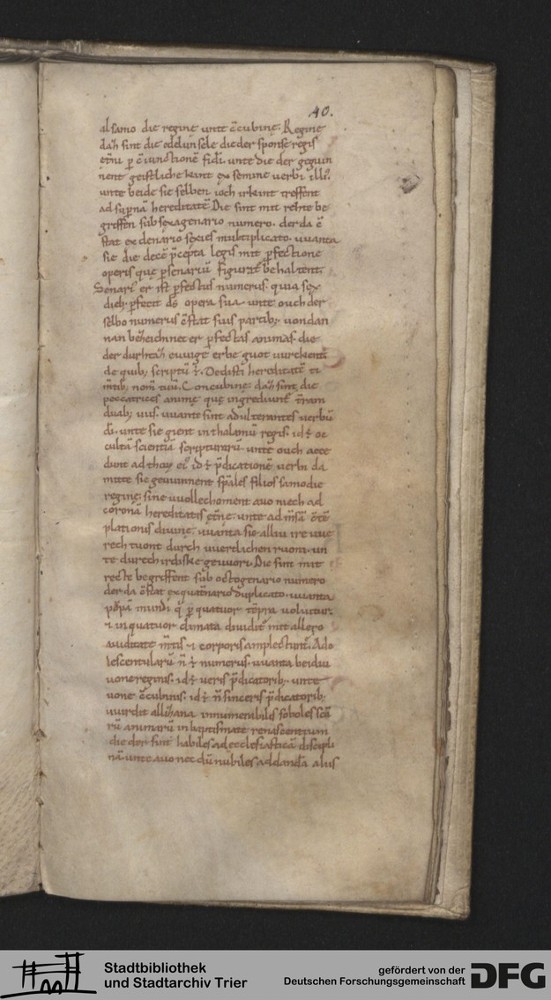 40.
alsamo die reginę unte c̄cubinę. Reginę
daz sint die edelun sele die der sponse regis
ęt̄ni p̄ c̄iunctionē fidi. unte die der gequin
nent geistlichę kint ex semine verbi illi'.
unte beide sie selben ioch ir kint treffent
ad sup̄nā hereditatē. Die sint mit rehte be
griffen sub sexagenario numero. der da c̄
stat ex denario sexies multiplicato. uuanta
sie die decē p̄cepta legis mit p̄fectione
operis quę p̄ senariū figurat̄ behaltent.
Senari' er ist p̄fectus numerus. quia sex
dieb; p̄fecit d̄s opera sua. unte ouch der
selbo numerus c̄stat suis partib; uon dan
nan bezeichnet er p̄fectas animas. die
der durh daz euuige erbe guot uurchent
de quib; scriptū ē. Dedisti hereditatē ti
mtib; nom̄ tuū. Concubinę daz sint die
peccatrices animę quę ingrediunt̄ t̄ram
duab; uiis. uuante sint adulterantes verbū
dī. unte sie gent in thalamū regis. id ē oc
cultā scientiā scripturarū. unte ouch acce
dunt ad thorū ei' id ē p̄dicationē verbi. da
mitte sie geuuinnent sp̄ales filios samo die
reginę. sine uuollechoment auo niech ad
coronā hereditatis ęt̄nę. unte ad īmsā c̄tē
plationis diuinę. uuanta sie alliu ire uue
rech tuont durch uuerlichen ruom. un
te durch irdiske geuuori. Die sint mit
rehte begriffent sub octogenario numero
der da c̄stat ex quat̄nario duplicato. uuanta
pōpā mundi q̄ p̄ quatuor tēpra uoluitur.
& in quatuor climata diuidit̄ mit allero
auiditate m̄tis & corporis amplectunt̄. Ado
lescentularū n̄ ē numerus. uuanta beidiu
uone reginis. id ē veris p̄dicatorib; unte
uone c̄cubinis. id ē n̄ sinceris p̄dicatorib;
uuirdit alliz ana innumerabiles soboles scā
rū animarū in baptismate renascentium
die der sint habiles ad ecclesiasticā discipli
nā. unte auo nec dū nubiles ad dandā aliis
Stadtbibliothek
und Stadtarchiv Trier
gefördert von der
Deutschen Forschungsgemeinschaft
DFG